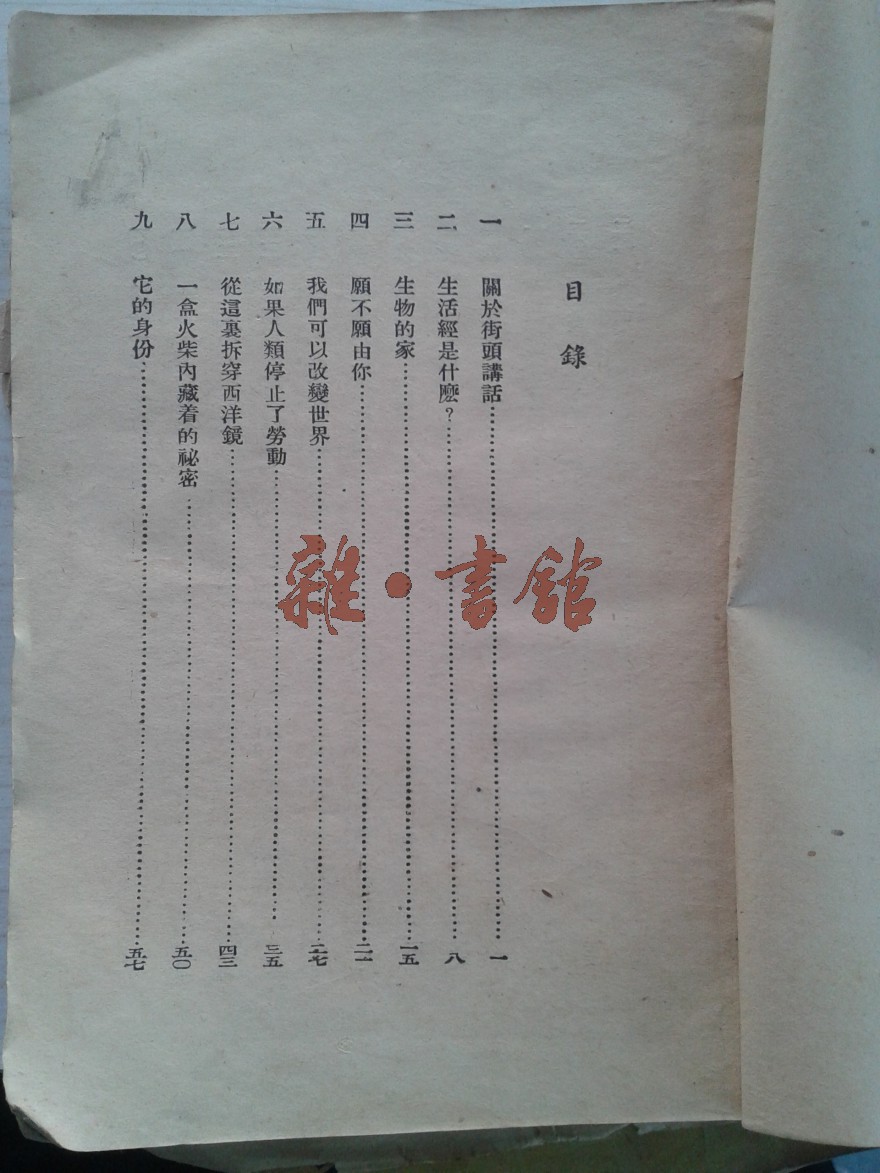 目錄
一 關於街頭講話……一
二 生活經是什麽？……八
三 生物的家……一五
四 願不願由你……二一
五 我們可以改變世界……二七
六 如果人類停止了勞動……三五
七 從這裏拆穿西洋鏡……四三
八 一盒火柴內藏着的祕密……五〇
九 它的身份……五七
雜·書館